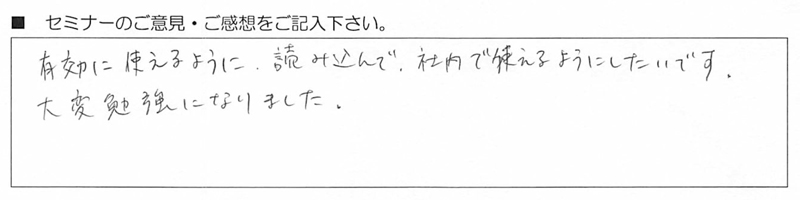 ■ セミナーのご意見・ご感想をご記入下さい。
有効に使えるように、読み込んで、社内で使えるようにしたいです。
大変勉強になりました。